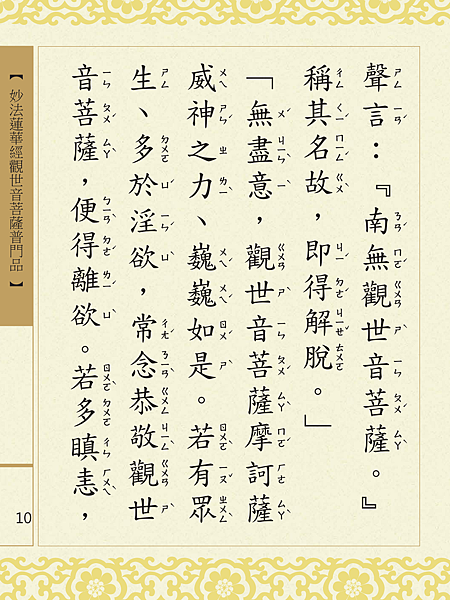 聲言：『南無觀世音菩薩。』
稱其名故，即得解脫。」
「無盡意，觀世音菩薩摩訶薩
威神之力、巍巍如是。若有眾
生、多於淫欲，常念恭敬觀世
音菩薩，便得離欲。若多瞋恚，
【妙法蓮華經觀世音菩薩普門品】
10